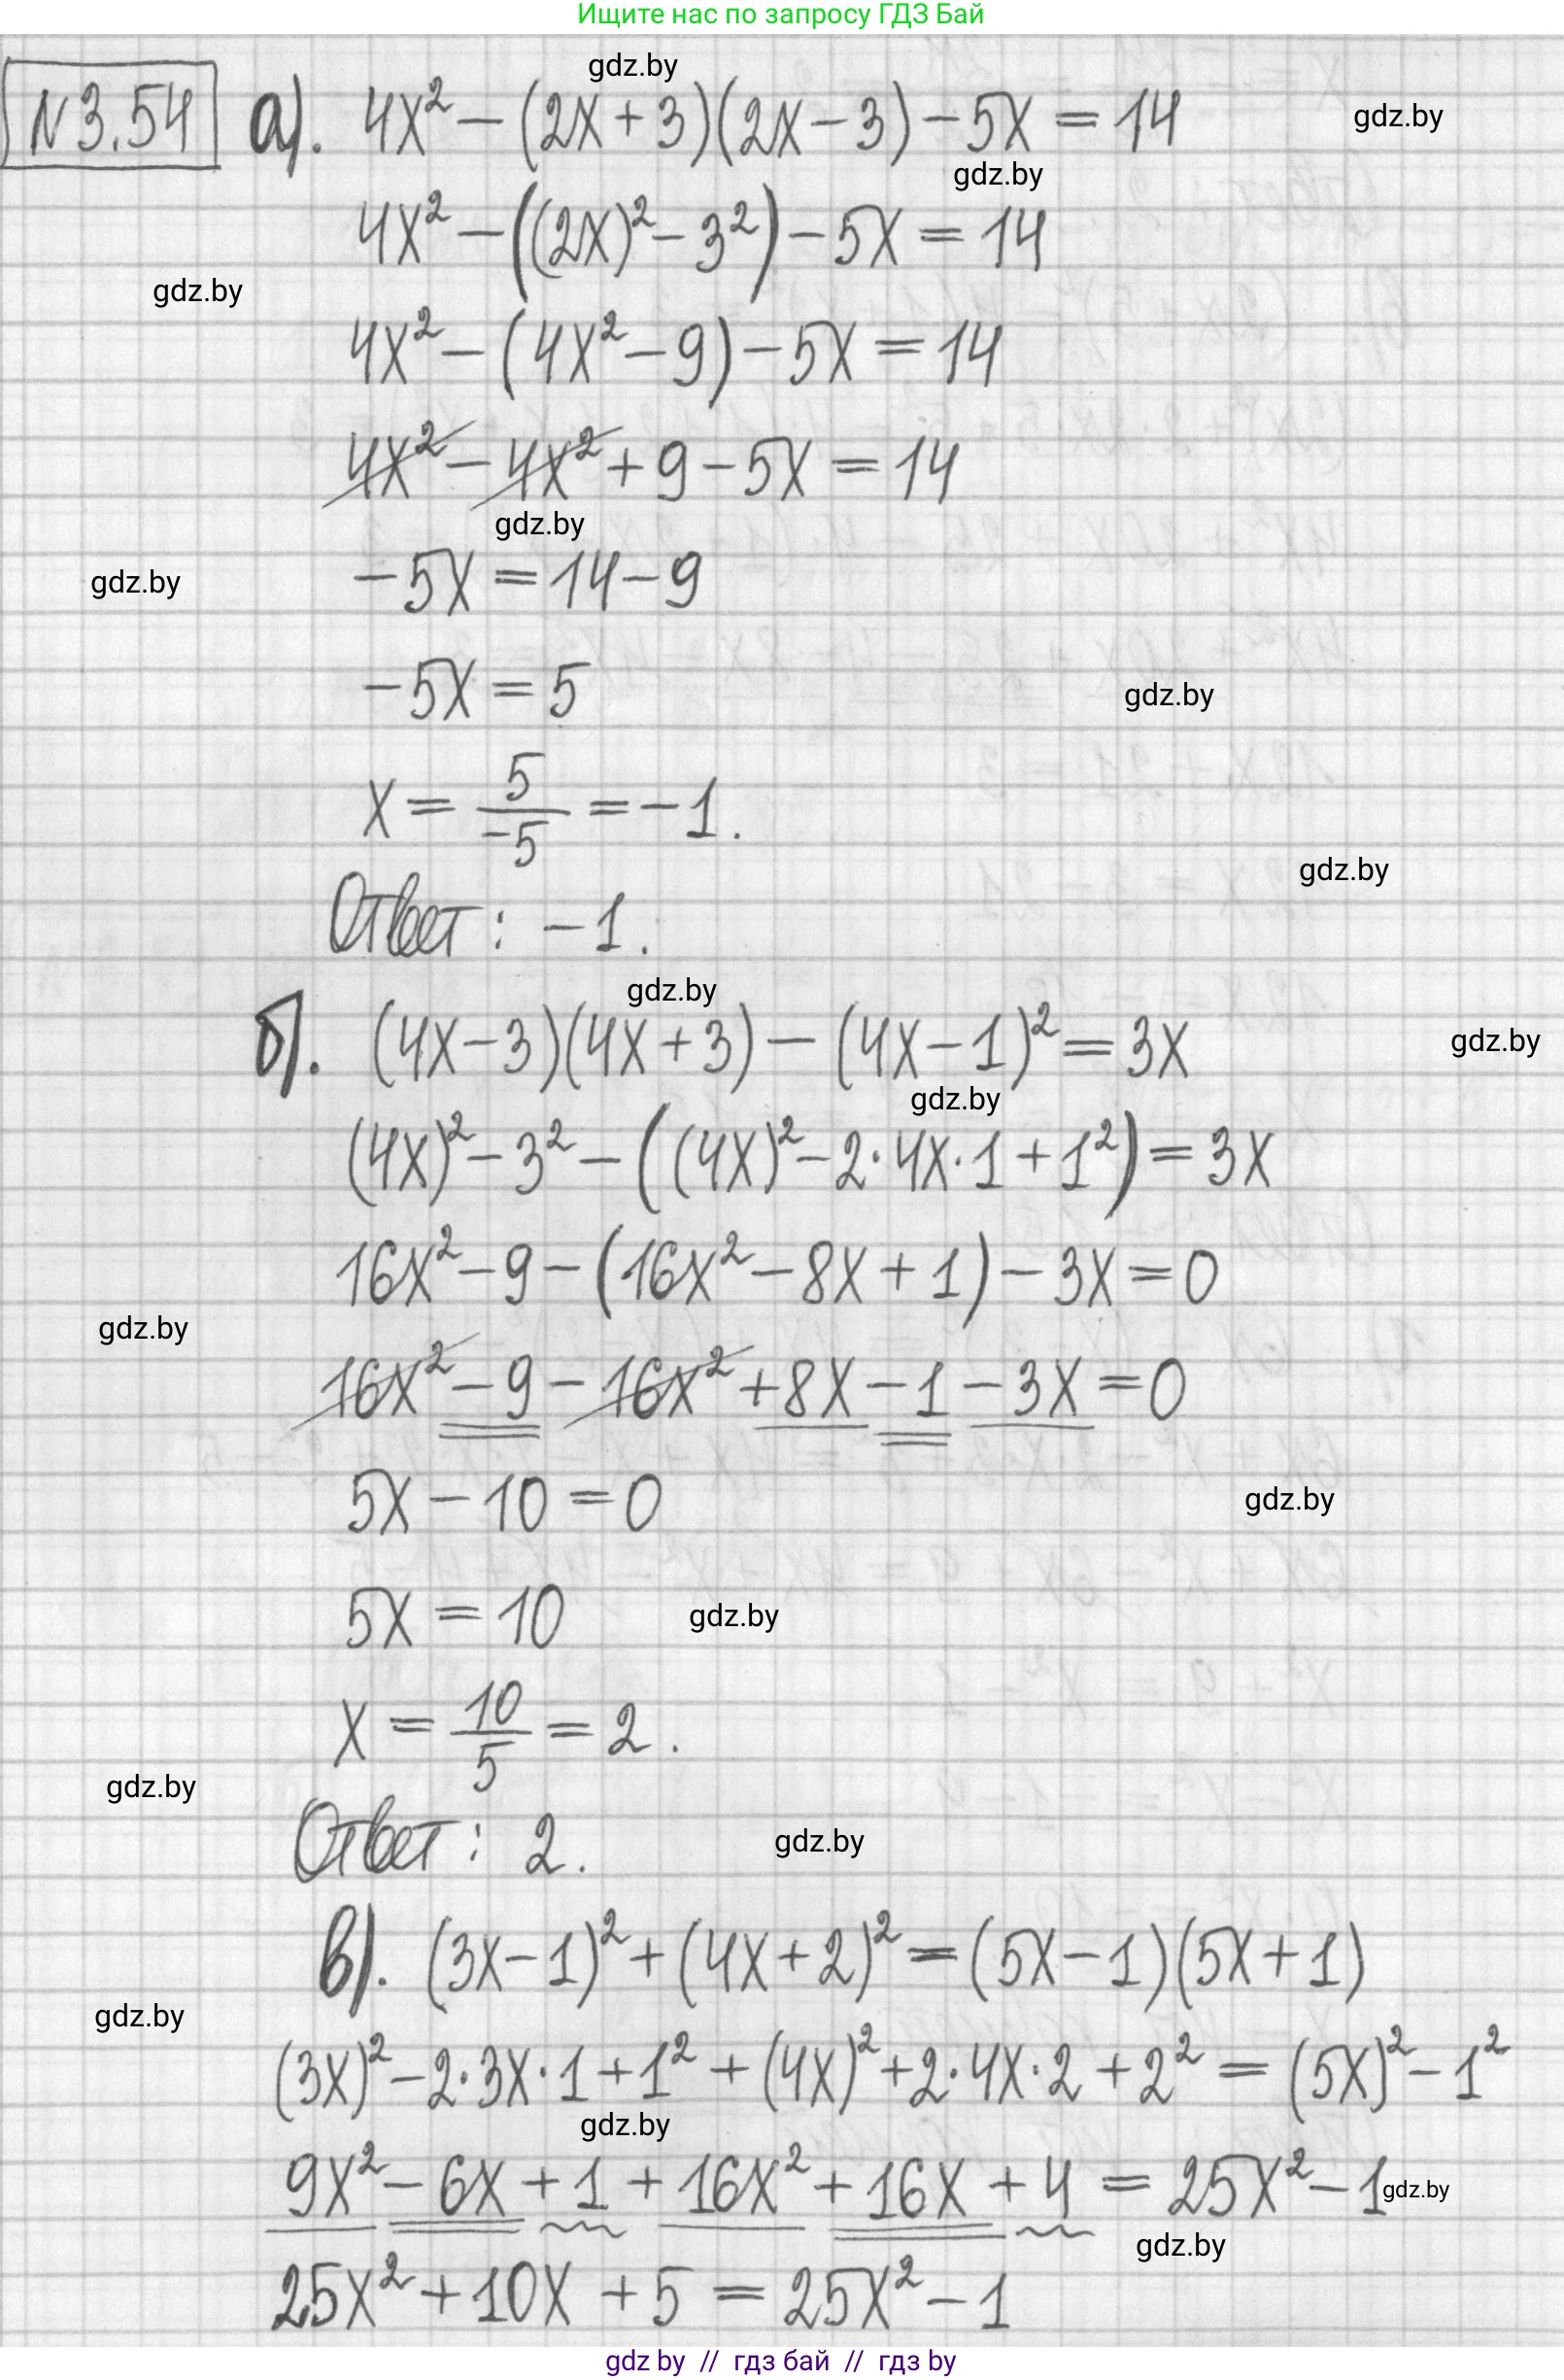 Ищите нас по запросу ГДЗ Бай
gdz.by
N3.54 а). 4x² - (2x + 3)(2x - 3) - 5x = 14
gdz.by
gdz.by
4x² - ((2x)² - 3²) - 5x = 14
gdz.by
4x² - (4x² - 9) - 5x = 14
4x² - 4x² + 9 - 5x = 14
gdz.by
gdz.by
-5x = 14 - 9
-5x = 5
gdz.by
x = 5/-5 = -1.
gdz.by
Ответ: -1.
gdz.by
б). (4x - 3)(4x + 3) - (4x - 1)² = 3x
gdz.by
gdz.by
(4x)² - 3² - ((4x)² - 2·4x·1 + 1²) = 3x
16x² - 9 - (16x² - 8x + 1) - 3x = 0
gdz.by
16x² - 9 - 16x² + 8x - 1 - 3x = 0
5x - 10 = 0
gdz.by
5x = 10
gdz.by
x = 10/5 = 2.
gdz.by
Ответ: 2.
gdz.by
в). (3x - 1)² + (4x + 2)² = (5x - 1)(5x + 1)
gdz.by
(3x)² - 2·3x·1 + 1² + (4x)² + 2·4x·2 + 2² = (5x)² - 1²
gdz.by
9x² - 6x + 1 + 16x² + 16x + 4 = 25x² - 1
gdz.by
gdz.by
25x² + 10x + 5 = 25x² - 1
gdz by // гдз бай // гдз by